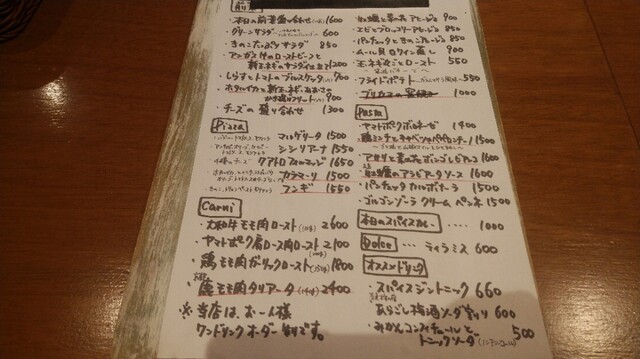 前菜
・本日の前菜盛り合わせ 1600
・グリーンサラダ 600
・きのこたっぷりサラダ 850
・アンガス牛のローストビーフと
新玉ネギのサラダ仕立て 1200
・しらすとトマトのブルスケッタ 900
・ホタルイカと新玉ネギ
900
・チーズの盛り合わせ 1300
Pizza
マルゲリータ 1500
シシリアーナ 1550
クアトロフォルマッジ 1650
カラマーリ 1500
フンギ 1550
Carni
・大和牛モモ肉ロースト 2600
・ヤマトポーク肩ロース肉ロースト 2100
・鶏モモ肉ガーリックロースト 1800
・鹿モモ肉タリアータ 2400
※当店は、お一人様
ワンドリンクオーダー制です。
900
・エビとブロッコリーアヒージョ 850
・パンチェッタときのこアヒージョ 850
・ムール貝白ワイン蒸し 900
・玉ネギまるごとロースト 550
・フライドポテト 550
1000
Pasta
・ヤマトポークボロネーゼ 1400
・鶏ミンチとキャベツ 1500
・アサリと菜の花ボンゴレビアンコ 1600
アラビアータソース 1600
・パンチェッタカルボナーラ 1500
・ゴルゴンゾーラクリームペンネ 1500
本日のスパイスカレー ···· 1000
Dolce ··· ティラミス 600
オススメドリンク
・スパイスジントニック 660
・あらごし梅酒ソーダ割り 600
・みかんコンフィチュールと
トニックソーダ 500